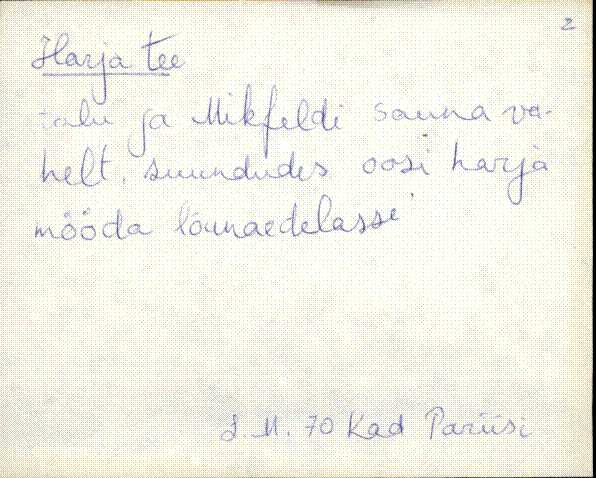 2
Harja tee
talu ja Mikfeldi sauna va-
helt, suundudes oosi harja
mööda lõunaedelasse
J. M. 70 Kad Pariisi